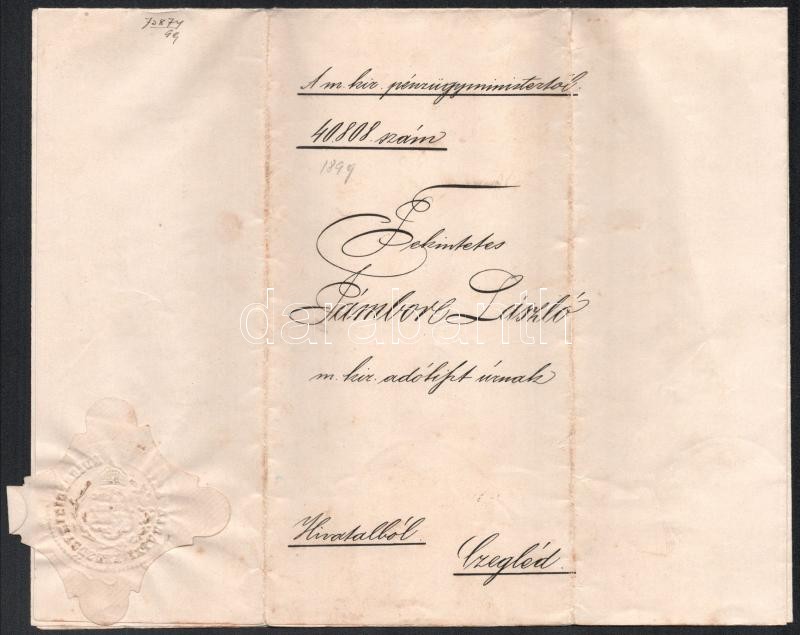 A m. kir. pénzügyministertől.
40.808. szám
1899
Tekintetes
Jámbor László
m. kir. adótiszt úrnak
Hivatalból.
Czegléd.
darabanth